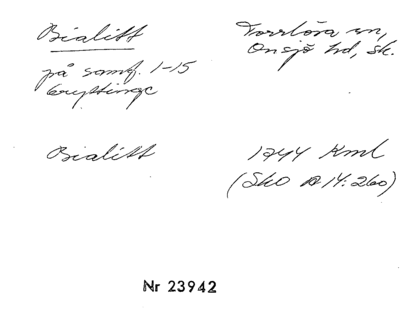 Bialitt
Torrlösa sn,
Onsjö hd, Sk.
på samf. 1-15
Bialitt
1744 Kml
(Sko 14:260)
Nr 23942